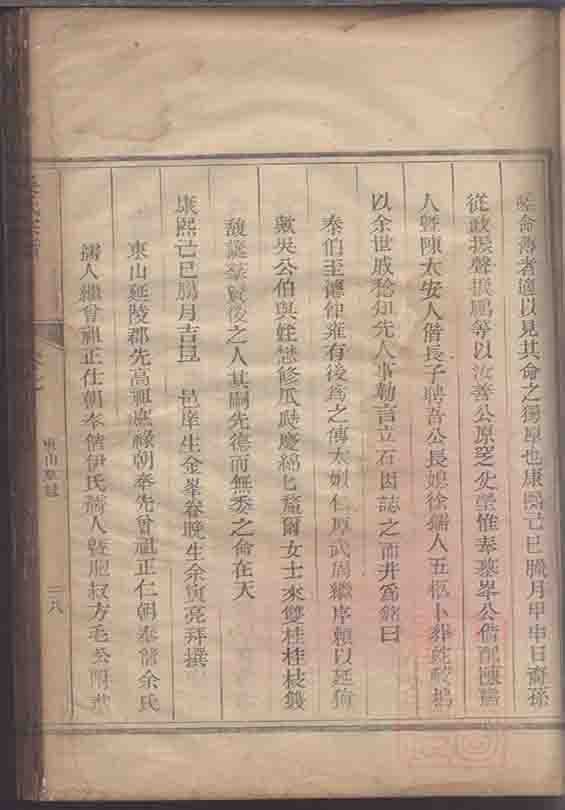 命薄者適以見其命之獨厚也康熙己巳臘月甲申日裔孫
從政振聲振鵬等以汝善公原空佳塋惟奉慕峯公偕配陳孺
人暨陳太安人偕長子聘吾公長媳徐孺人五柩卜葬
以余世戚稔知先人事勒言立石因誌之而并為銘曰
泰伯至德仲雍有後為之傳太姒仁厚武周繼序賴以延猗
歟吳公伯與姪懋修瓜瓞慶綿匕釐爾女士來雙桂桂枝
馥誕英賢後之人其嗣先德而無委之命在天
康熙己巳臘月吉旦　邑庠生金峯眷晚生余寅亮拜撰
東山延陵郡先高祖應祿朝奉先曾祖正仁朝奉偕余氏
孺人繼曾祖正仕朝奉偕伊氏孺人暨胞叔方毛公附葬
東山
二八